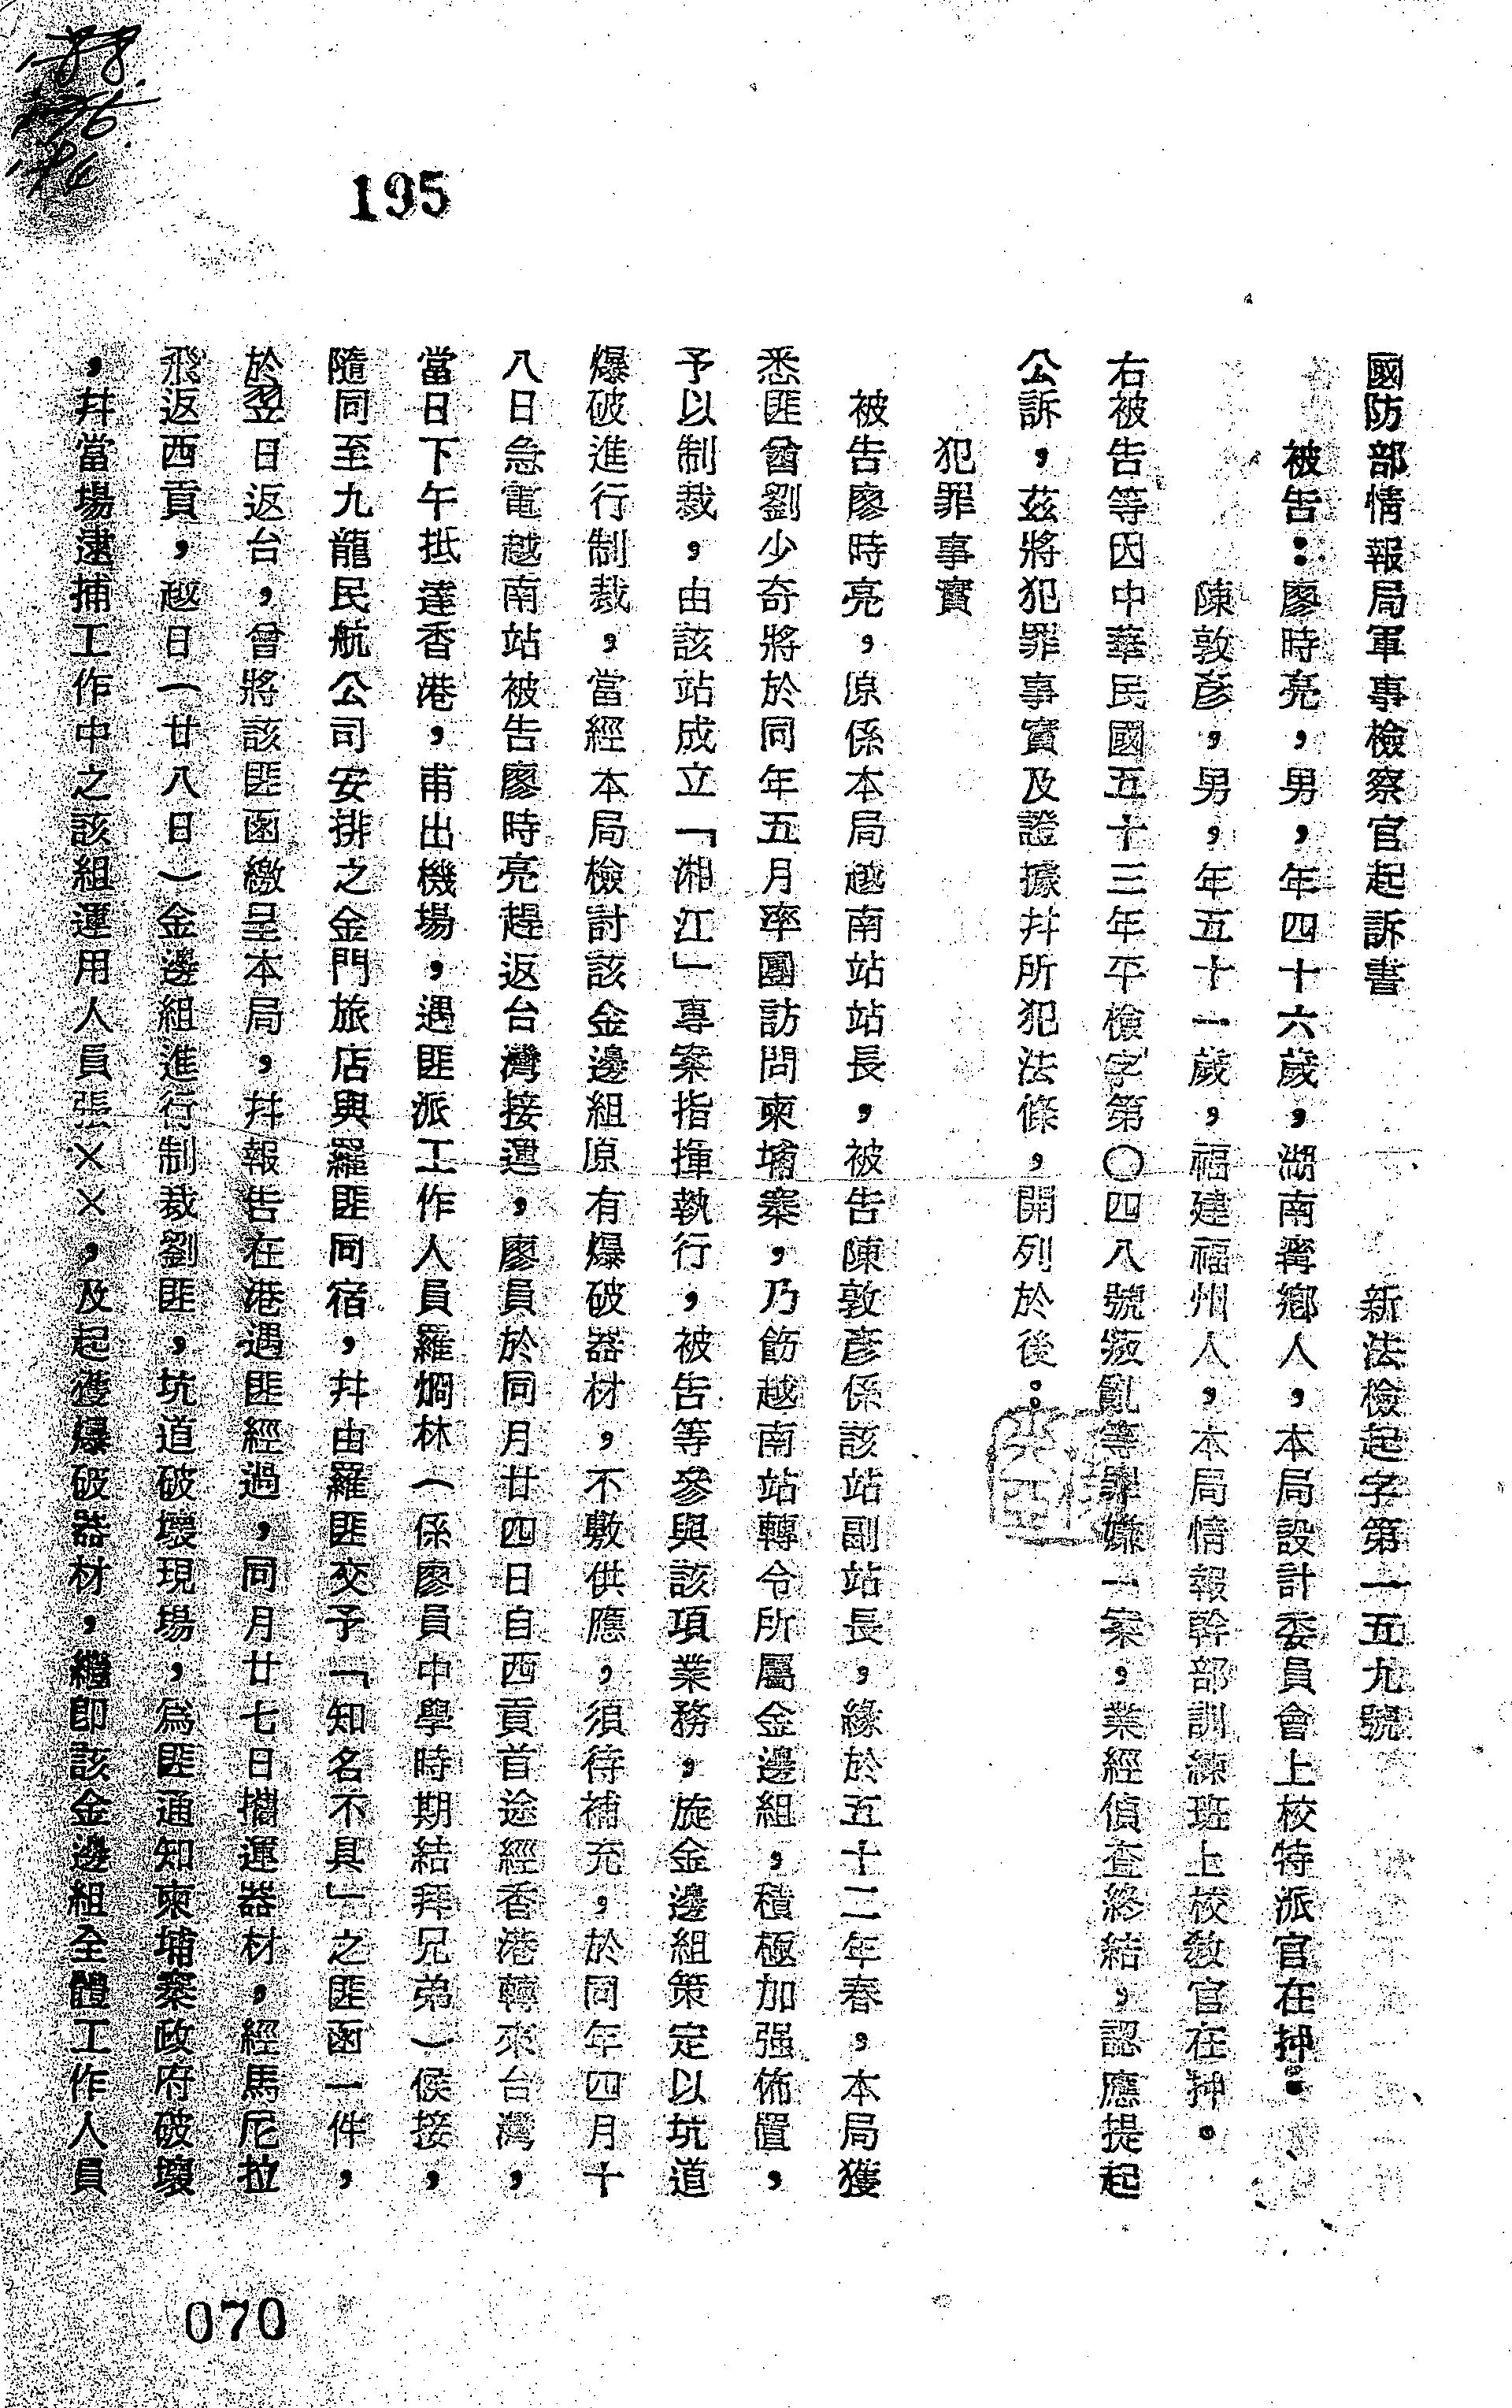 195
國防部情報局軍事檢察官起訴書　新法檢起字第一五九號
被告：廖時亮，男，年四十六歲，湖南甯鄉人，本局設計委員會上校特派官在押。
陳敦彥，男，年五十一歲，福建福州人，本局情報幹部訓練班上校教官在押。
右被告等因中華民國五十三年平檢字第〇四八號叛亂等罪嫌一案，業經偵查終結，認應提起
公訴，茲將犯罪事實及證據幷所犯法條，開列於後。
犯罪事實
被告廖時亮，原係本局越南站站長，被告陳敦彥係該站副站長，緣於五十二年春，本局獲
悉匪酋劉少奇將於同年五月率團訪問柬埔寨，乃飭越南站轉令所屬金邊組，積極加强佈置，
予以制裁，由該站成立「湘江」專案指揮執行，被告等參與該項業務，旋金邊組策定以坑道
爆破進行制裁，當經本局檢討該金邊組原有爆破器材，不敷供應，須待補充，於同年四月十
八日急電越南站被告廖時亮趕返台灣接運，廖員於同月廿四日自西貢首途經香港轉來台灣，
當日下午抵達香港，甫出機場，遇匪派工作人員羅烱林（係廖員中學時期結拜兄弟）候接，
隨同至九龍民航公司安排之金門旅店與羅匪同宿，幷由羅匪交予「知名不具」之匪函一件，
於翌日返台，曾將該匪函繳呈本局，幷報告在港遇匪經過，同月廿七日攜運器材，經馬尼拉
飛返西貢，越日（廿八日）金邊組進行制裁劉匪，坑道破壞現場，爲匪通知柬埔寨政府破壞
，幷當場逮捕工作中之該組運用人員張××，及起獲爆破器材，繼即該金邊組全體工作人員
070